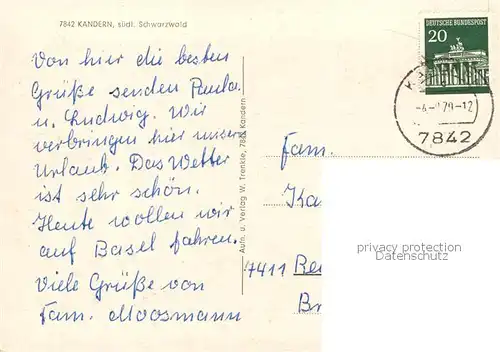 7842 KANDERN, südl. Schwarzwald
Von hier die besten
Grüße senden Paula
u. Ludwig. Wir
verbringen hier unsern
Urlaub. Das Wetter
ist sehr schön.
Heute wollen wir
auf Basel fahren.
Viele Grüße von
Fam. Moosmann
Aufn. u. Verlag W. Trenkle, 7842 Kandern
DEUTSCHE BUNDESPOST
20
7842
Fam.
Ka
7411 Reu
Br
privacy protection
Datenschutz